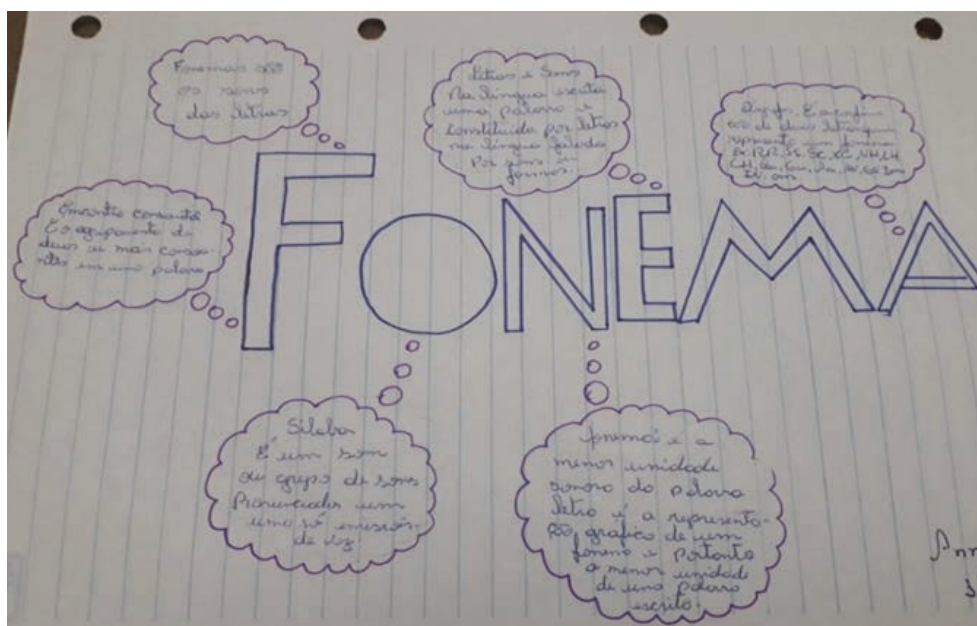 Fonemas são
os sons
das letras
Letras e Sons
Na língua escrita
uma palavra é
constituída por letras
na língua falada
Por sons
formos.
que
representa um fonema
Encontro consontal
É o agrupamento de
duas ou mais conso-
ntes em uma palavra
FONEMA
Sílaba
É um som
ou grupo de sons
Pronunciados um
uma só emissão
de voz
fonema é a
menor unidade
sonora da palavra
letra é a representa-
ção gráfica de um
fonema e portanto
a menor unidade
de uma palavra
escrita.